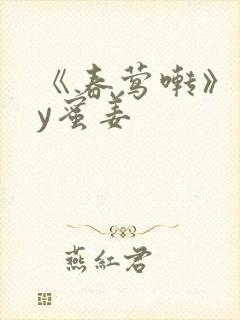 《春莺啭》
y蜜姜
燕紅君